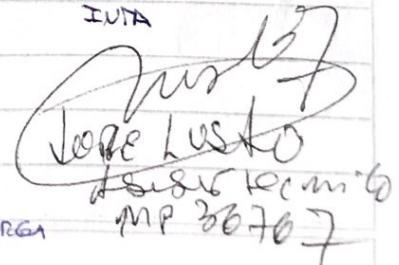 INTA
JORGE LUSTO
Asesor tecnico
MP 36767
RGA